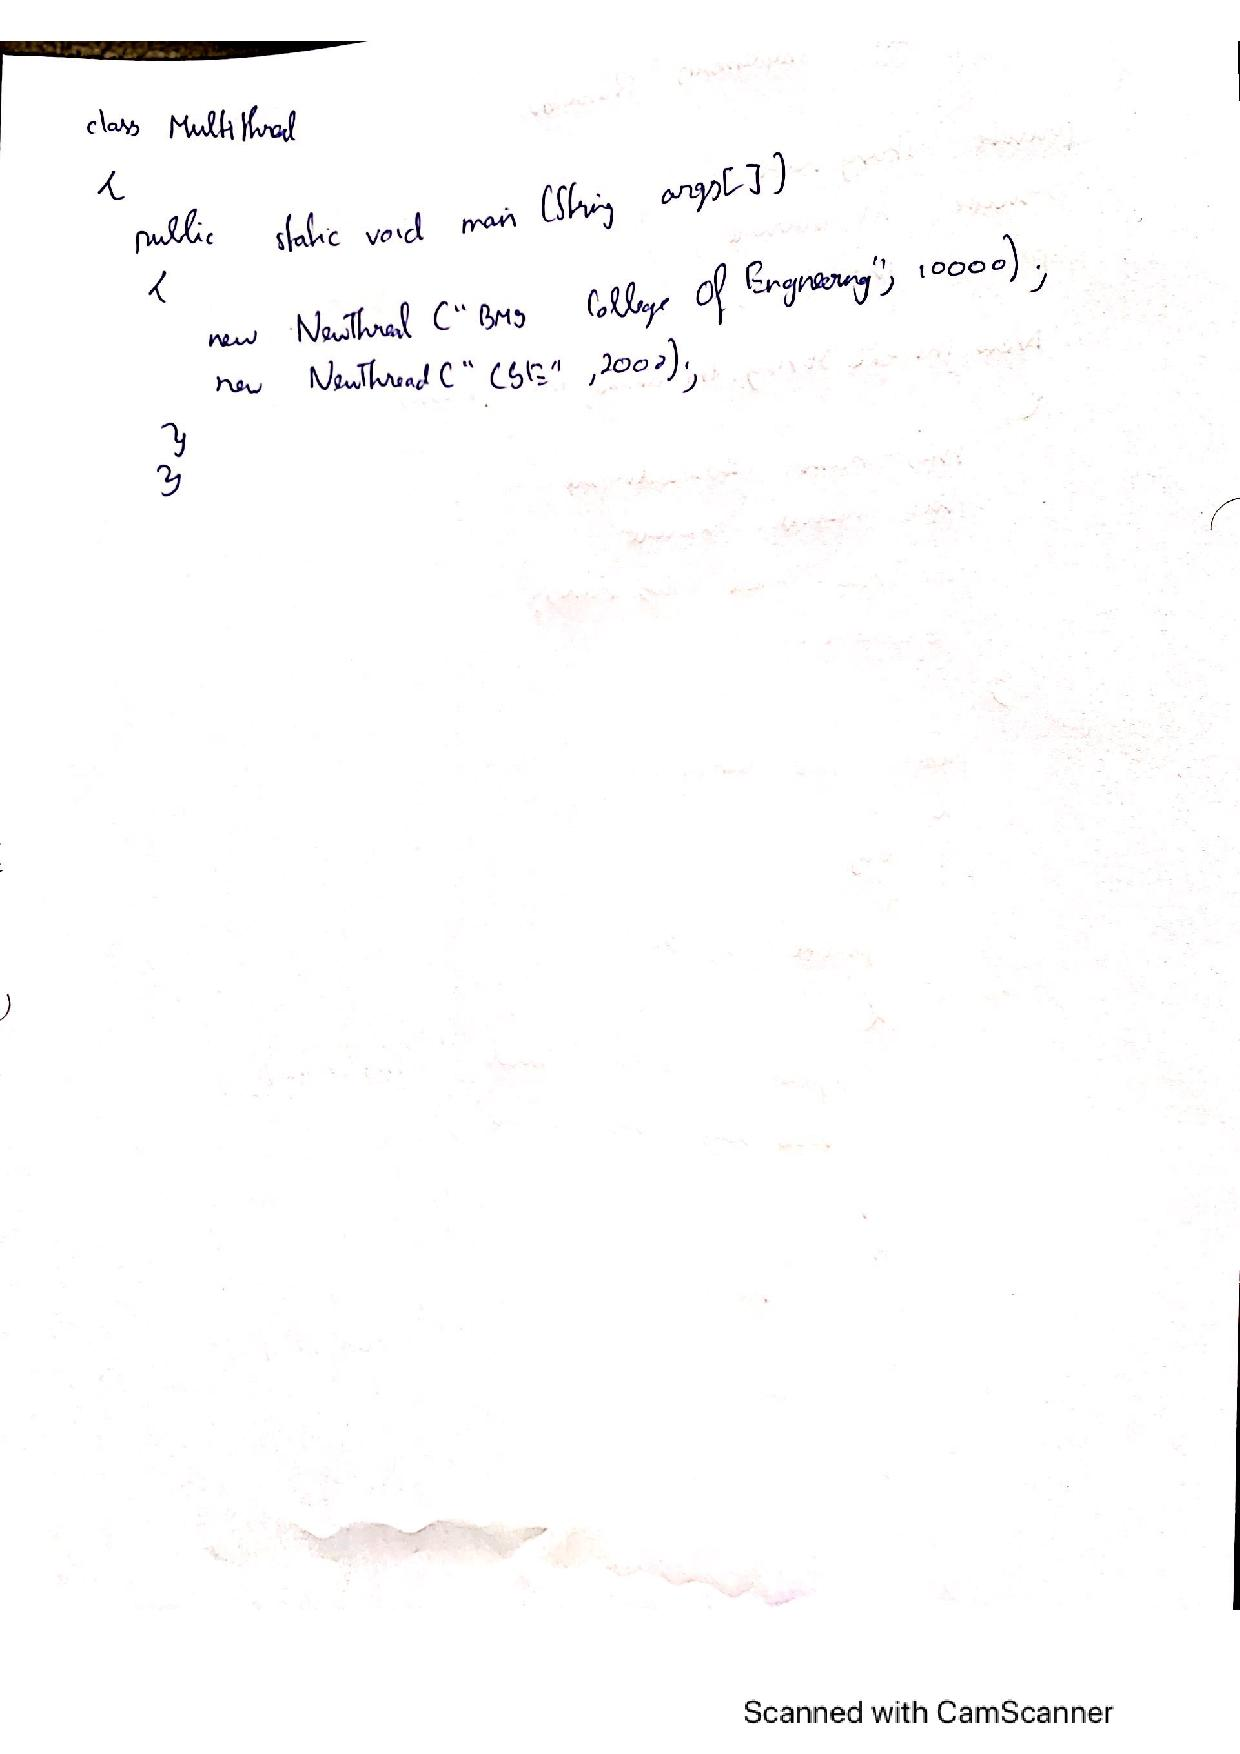 class Multithread
{
public static void main (String args[])
{
new NewThread ("BMS College of Engineering", 10000);
new NewThread ("CSE", 2000);
}
}
Scanned with CamScanner